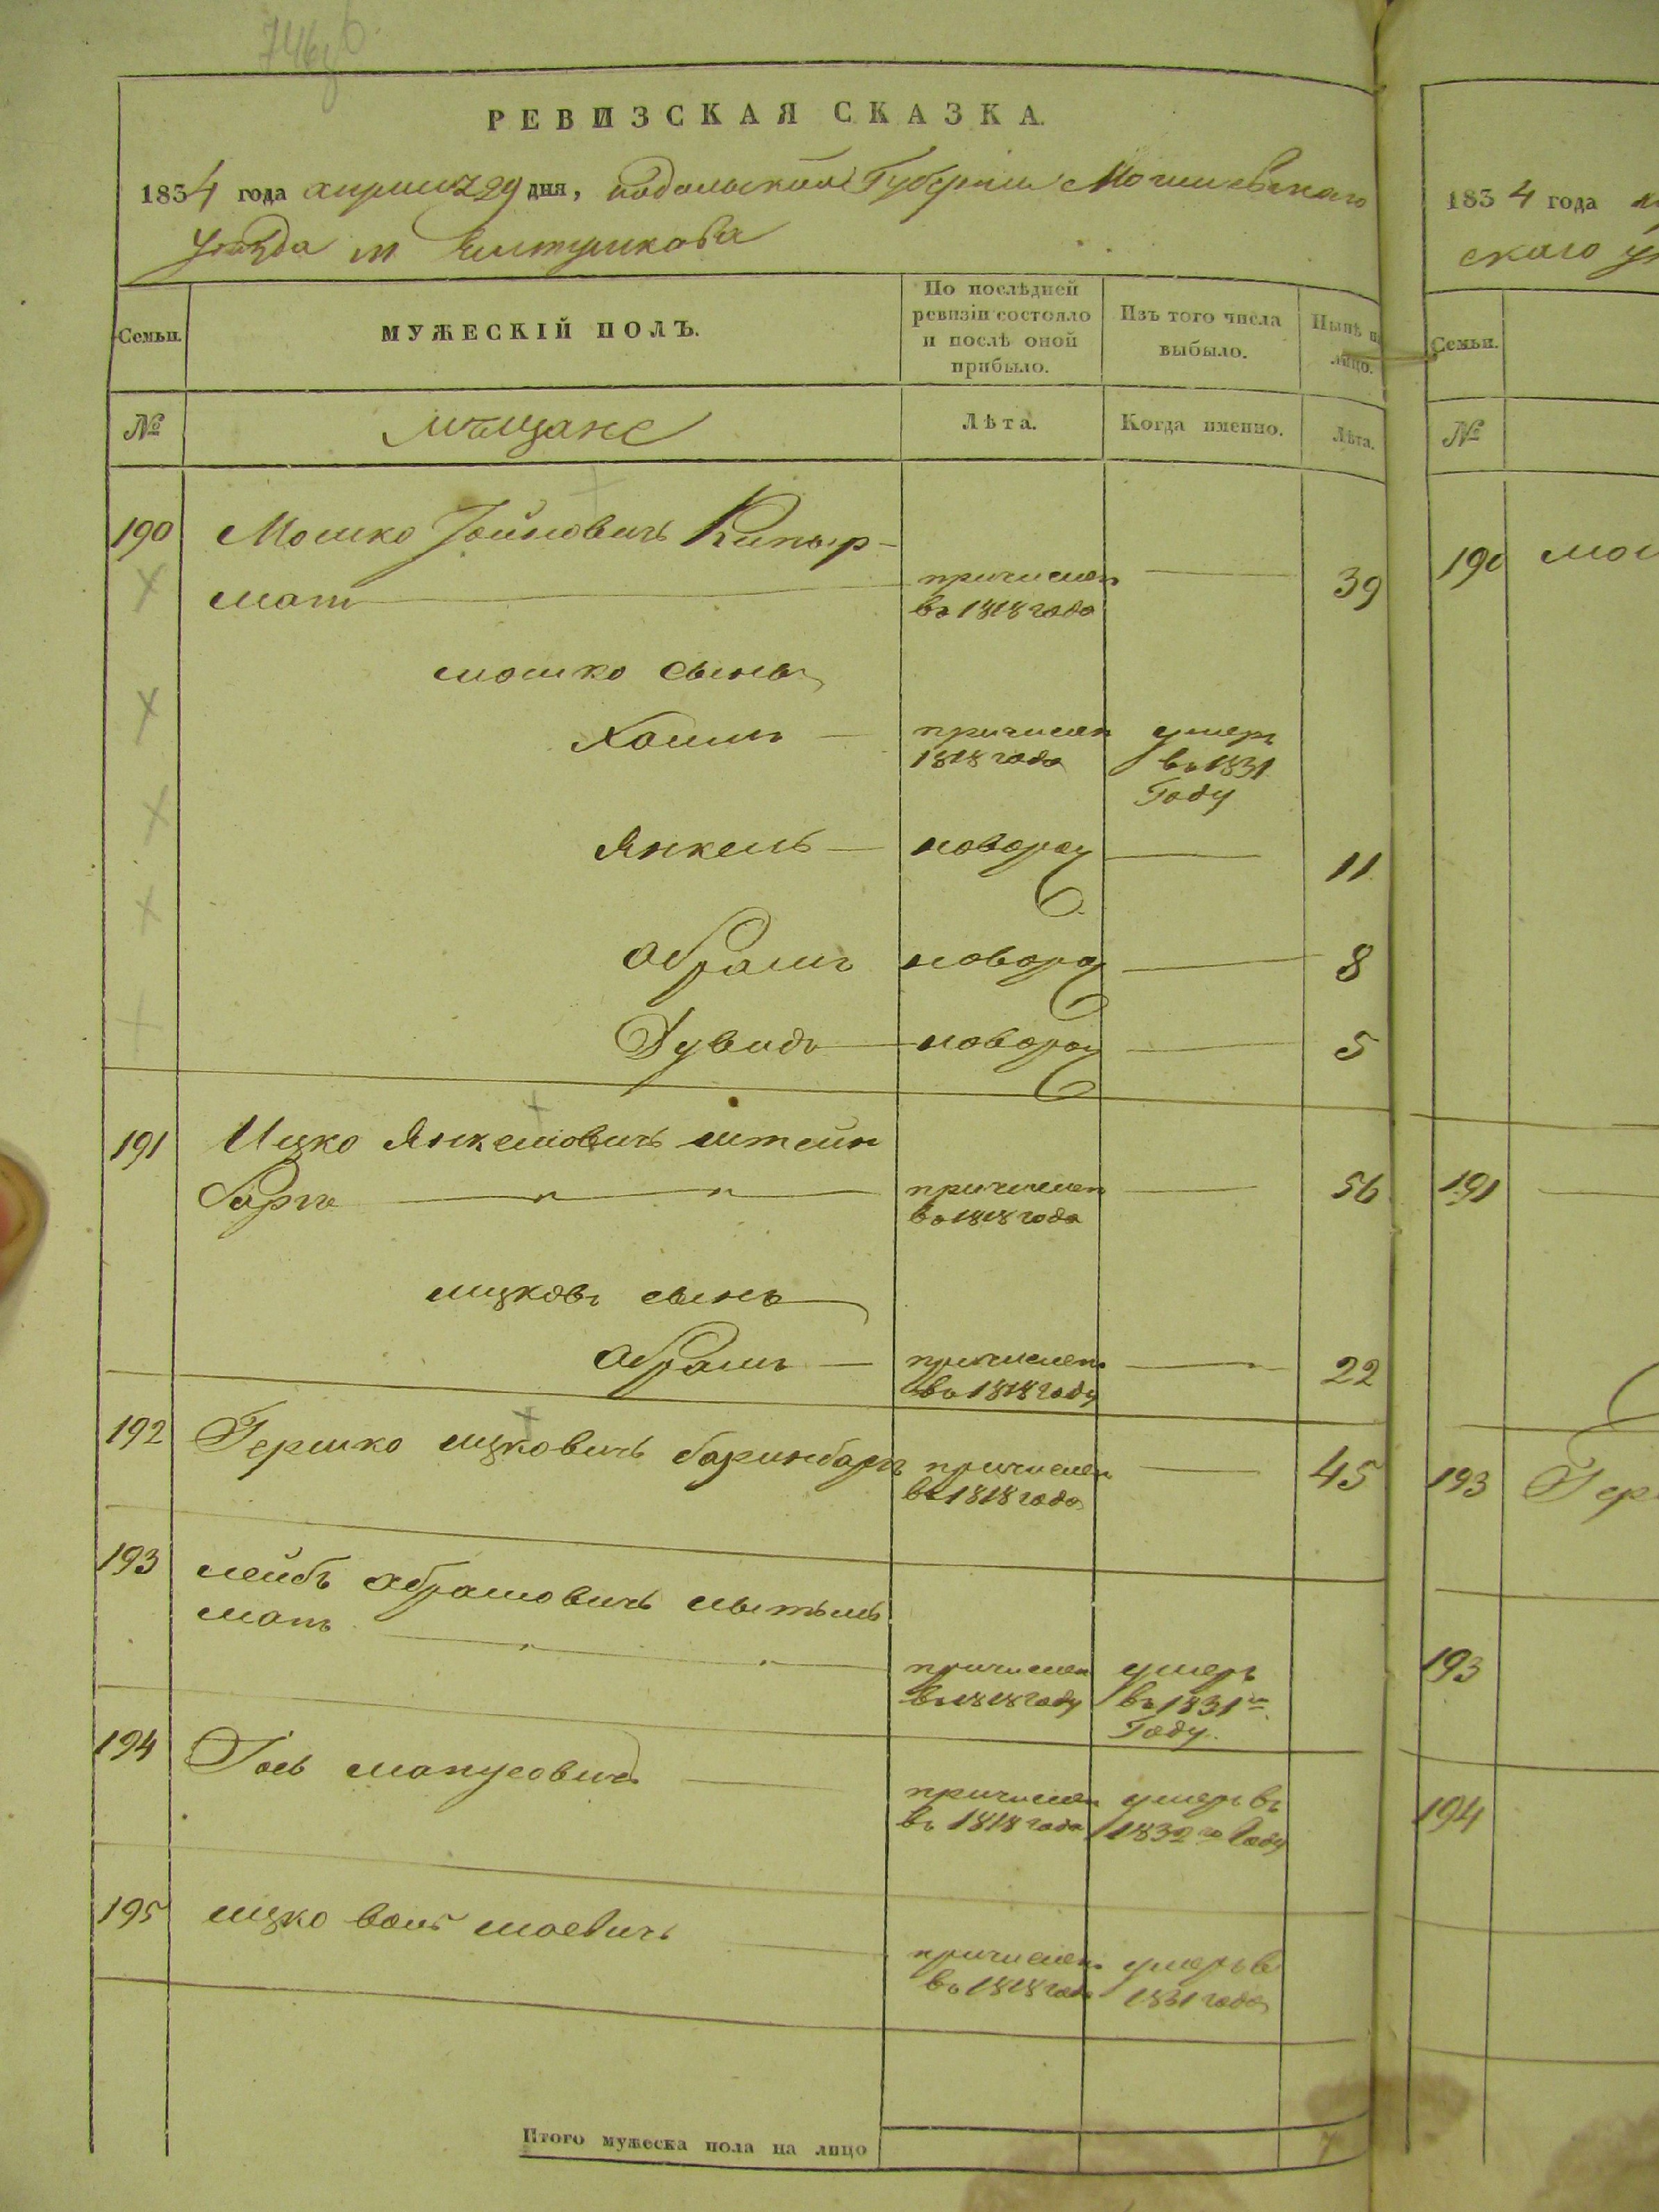 РЕВИЗСКАЯ СКАЗКА.
1834 года апреля 29 дня, Подольской Губернии Могилевскаго
уезда м Елтушкова
Семьи.
МУЖЕСКІЙ ПОЛЪ.
По послѣдней ревизіи состояло и послѣ оной прибыло.
Изъ того числа выбыло.
Нынѣ на лицо.
№
мѣщане
Лѣта.
Когда именно.
Лѣта.
190 Мошко Іойновичъ
матъ причислен въ 1818 года 39
мошко сынъ
Хаимъ причислен 1818 года умеръ въ 1831 Году
Янкель новорож 11
Абрамъ новорож 8
Дувидъ новорож 5
191 Ицко Янкелювичъ штейн
барга причислен въ 1818 года 56
ицковъ сынъ
Абрамъ причислен въ 1818 году 22
192 Гершко ицковичъ причислен въ 1818 года 45
193 лейбъ абрамовичъ
матъ причислен въ 1818 году умеръ въ 1831 Году.
194 манусовичъ причислен въ 1818 года умеръ въ 1832го Году
195 ицко причислен въ 1818 года умеръ в 1831 года
Итого мужеска пола на лицо 7
1834 года
скаго
Семьи.
№
190
191
193 Гер
193
194